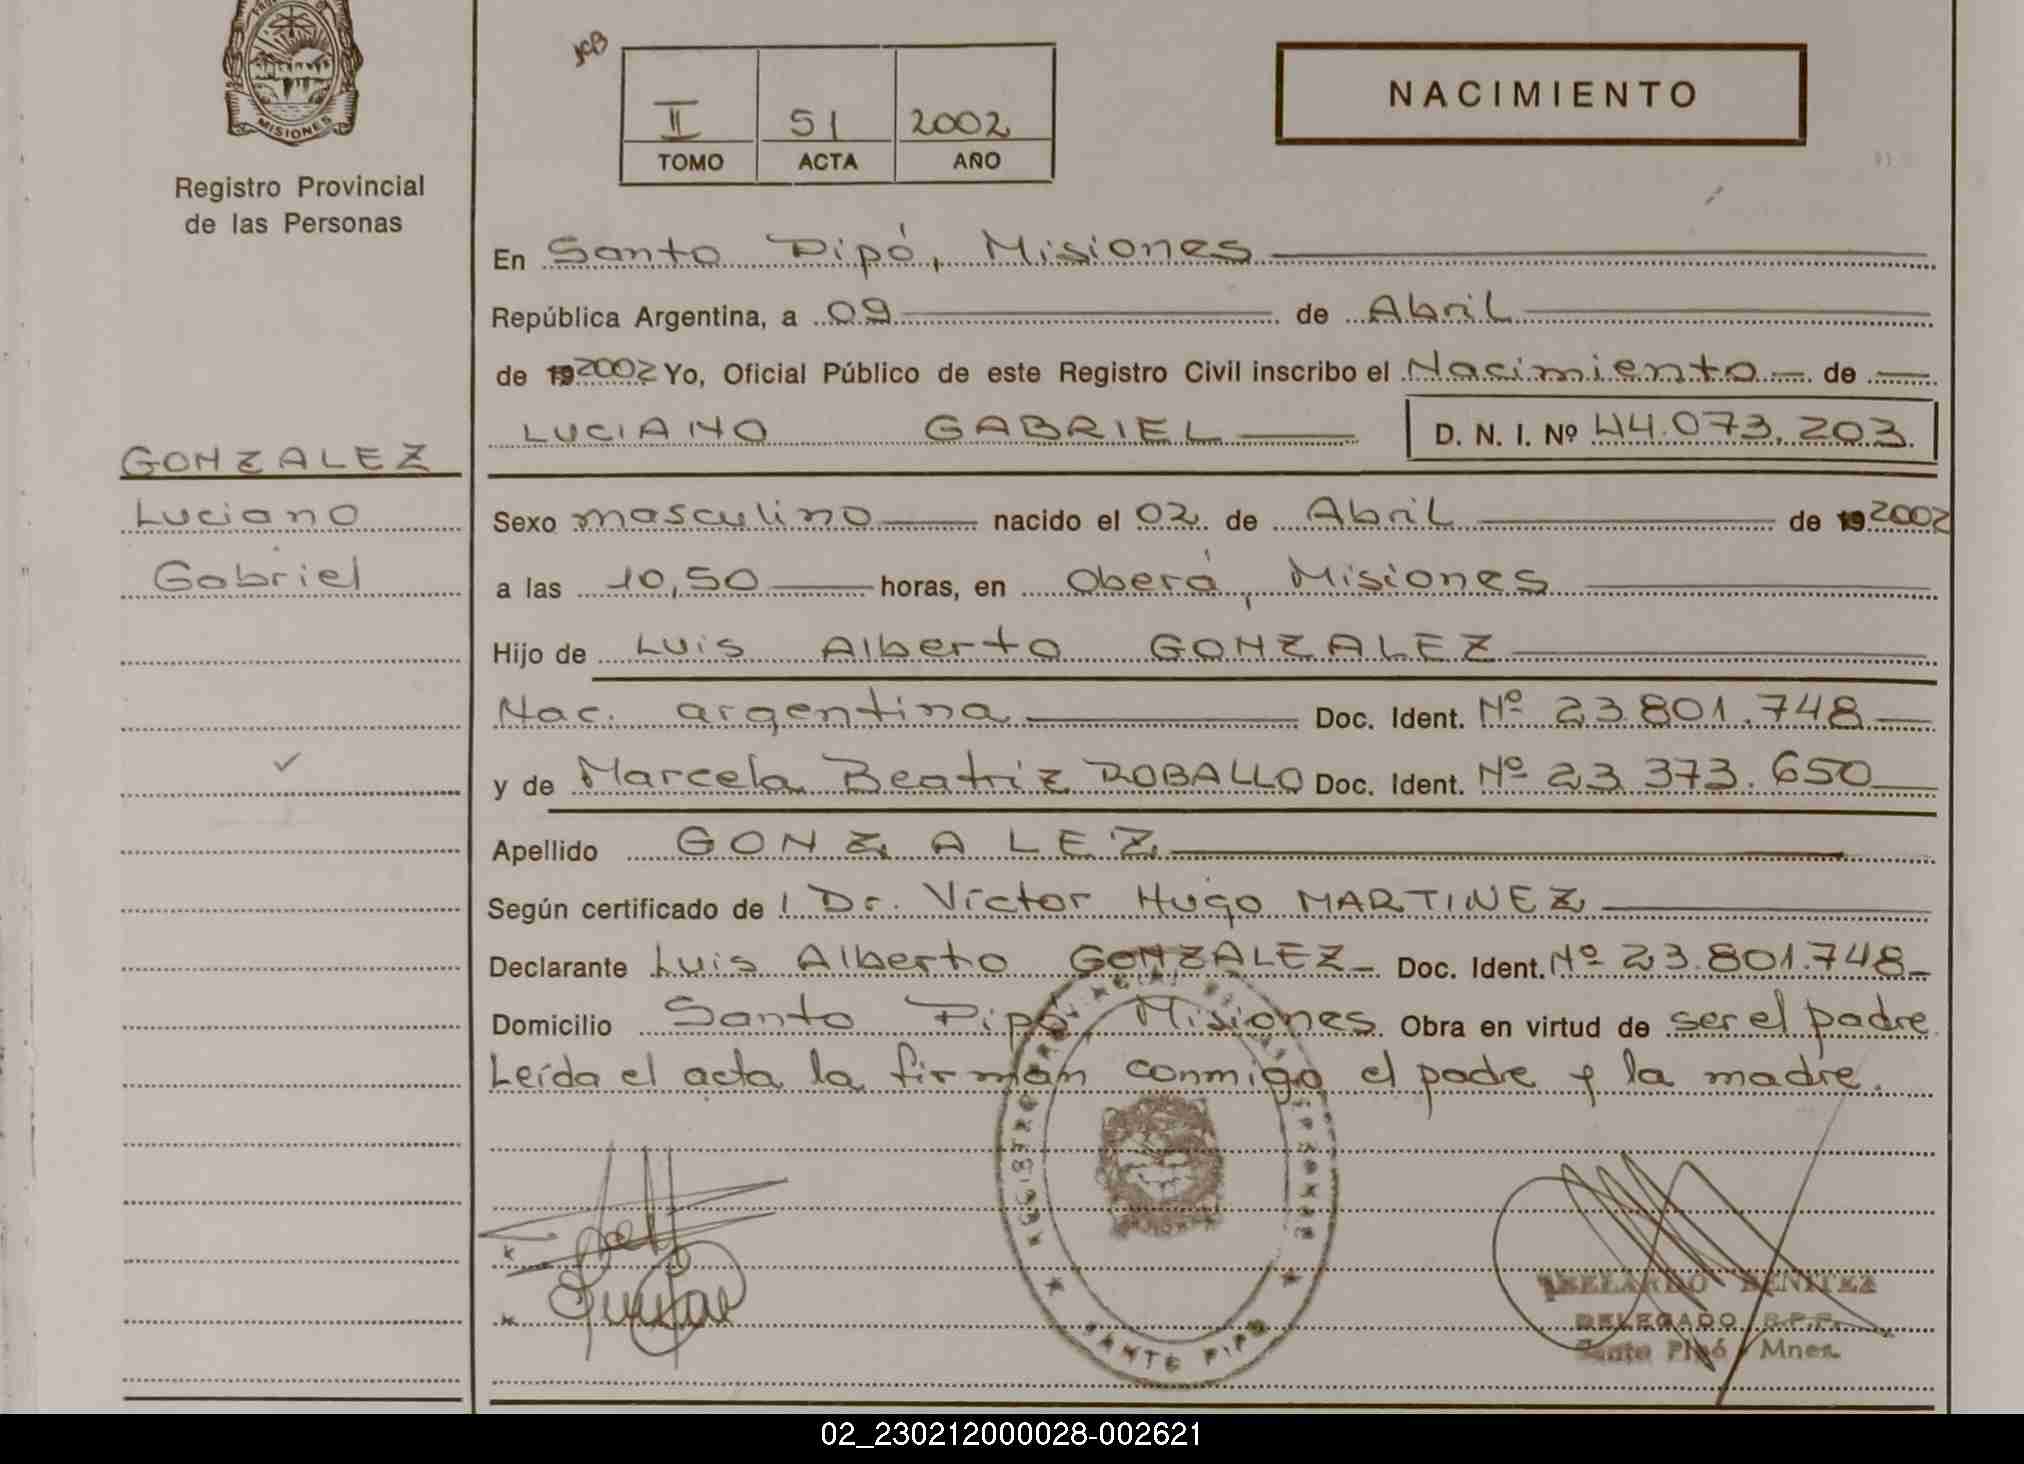 MISIONES
Registro Provincial
de las Personas
II 51 2002
TOMO ACTA AÑO
NACIMIENTO
En Santo Pipó, Misiones
República Argentina, a 09 de Abril
de 192002 Yo, Oficial Público de este Registro Civil inscribo el Nacimiento de
LUCIANO GABRIEL D. N. I. Nº 44.073.203.
GONZALEZ
Luciano
Gabriel
Sexo masculino nacido el 02 de Abril de 192002
a las 10,50 horas, en Oberá, Misiones
Hijo de Luis Alberto GONZALEZ
Nac. argentina Doc. Ident. Nº 23.801.748
y de Marcela Beatriz ROBALLO Doc. Ident. Nº 23.373.650
Apellido GONZALEZ
Según certificado del Dr. Víctor Hugo MARTINEZ
Declarante Luis Alberto GONZALEZ Doc. Ident. Nº 23.801.748
Domicilio Santo Pipó Misiones Obra en virtud de ser el padre
Leída el acta la firman conmigo el padre y la madre.
ABELARDO BENITEZ
DELEGADO R.P.P.
Santo Pipó Mnes.
02_230212000028-002621